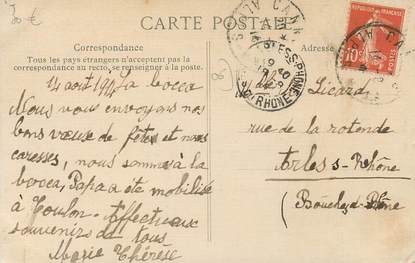 CARTE POSTALE
Correspondance
Tous les pays étrangers n'acceptent pas la
correspondance au recto, se renseigner à la poste.
14 août 1914 La bocca
Nous vous envoyons nos
bons vœux de fêtes et nos
caresses, nous sommes à la
bocca, Papa a été mobilisé
à Toulon. Affectueux
souvenirs de tous
Marie Thérèse
Adresse
Licard
rue de la rotonde
Arles s-Rhône
(Bouches d-Rhône
10